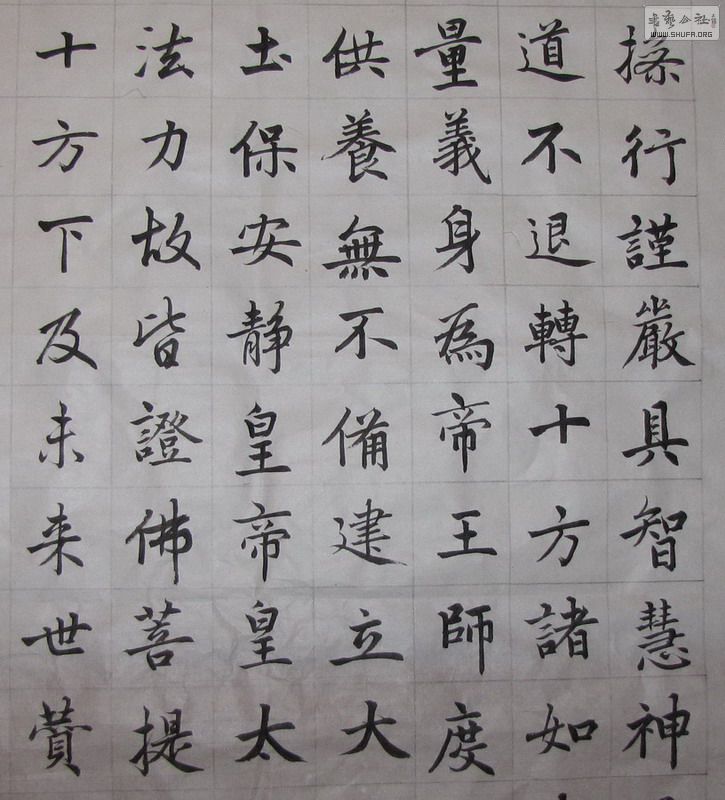 操行謹嚴具智慧神
道不退轉十方諸如
量義身為帝王師度
供養無不備建立大
土保安静皇帝皇太
法力故皆證佛菩提
十方下及未来世
書藝公社
WWW.SHUFA.ORG